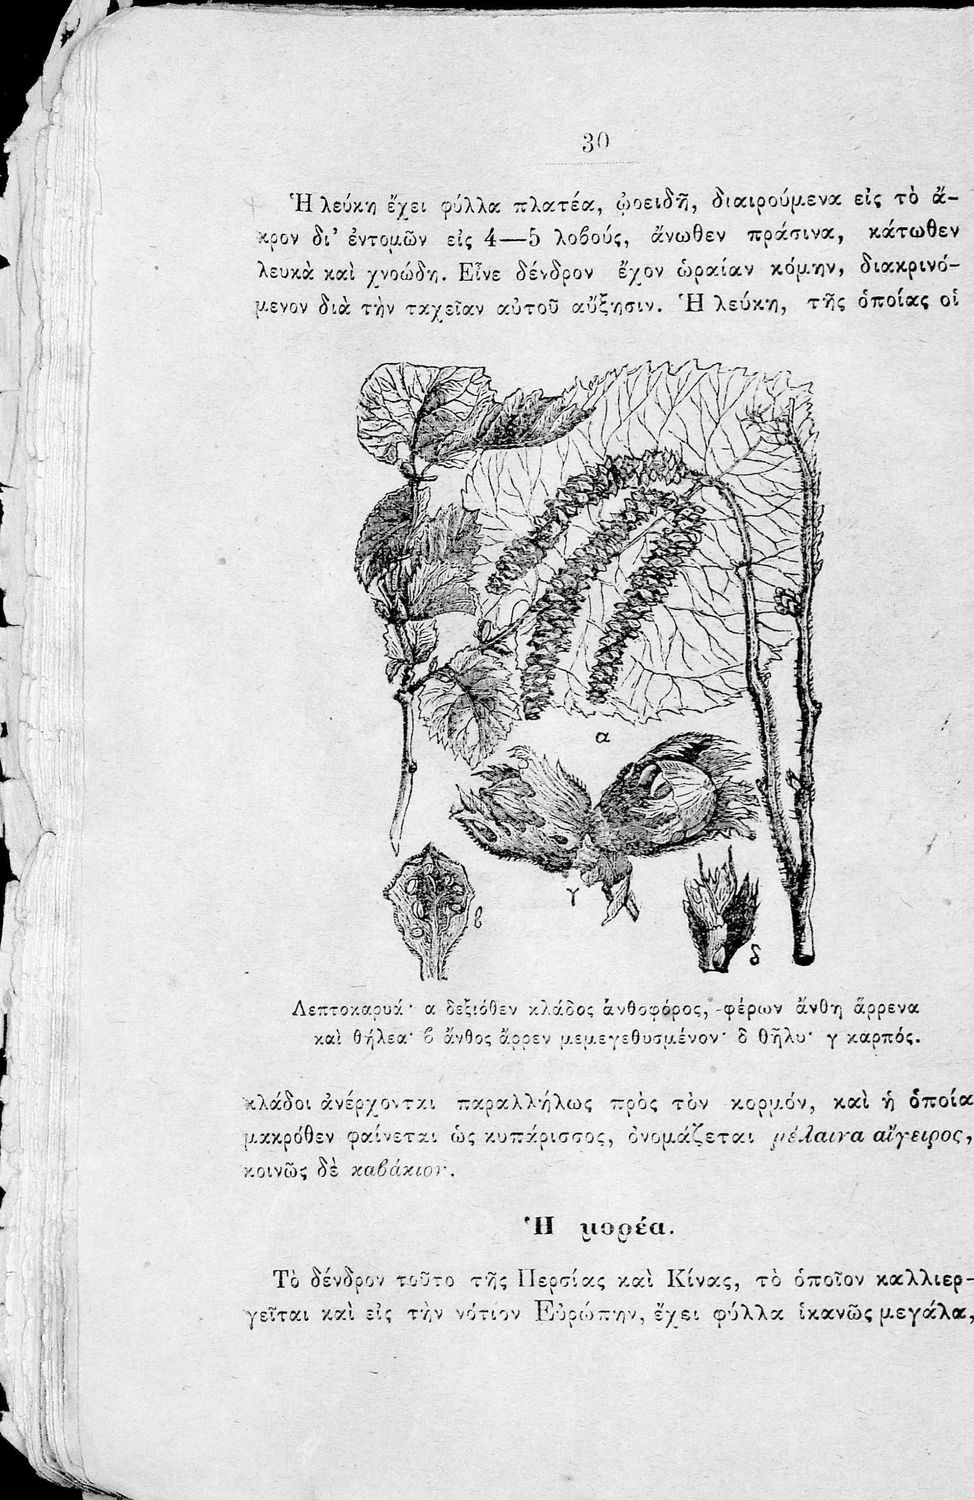 30
Ἡ λεύκη ἔχει φύλλα πλατέα, ᾠοειδῆ, διαιρούμενα εἰς τὸ ἄ-
κρον δι' ἐντομῶν εἰς 4—5 λοβούς, ἄνωθεν πράσινα, κάτωθεν
λευκὰ καὶ χνοώδη. Εἶνε δένδρον ἔχον ὡραίαν κόμην, διακρινό-
μενον διὰ τὴν ταχεῖαν αὐτοῦ αὔξησιν. Ἡ λεύκη, τῆς ὁποίας οἱ
α
γ
β
δ
Λεπτοκαρυά· α δεξιόθεν κλάδος ἀνθοφόρος, φέρων ἄνθη ἄρρενα
καὶ θήλεα· β ἄνθος ἄρρεν μεμεγεθυσμένον· δ θῆλυ· γ καρπός.
κλάδοι ἀνέρχονται παραλλήλως πρὸς τὸν κορμόν, καὶ ἡ ὁποία
μακρόθεν φαίνεται ὡς κυπάρισσος, ὀνομάζεται μέλαινα αἴγειρος,
κοινῶς δὲ καβάκιον.
Ἡ μορέα.
Τὸ δένδρον τοῦτο τῆς Περσίας καὶ Κίνας, τὸ ὁποῖον καλλιερ-
γεῖται καὶ εἰς τὴν νότιον Εὐρώπην, ἔχει φύλλα ἱκανῶς μεγάλα,